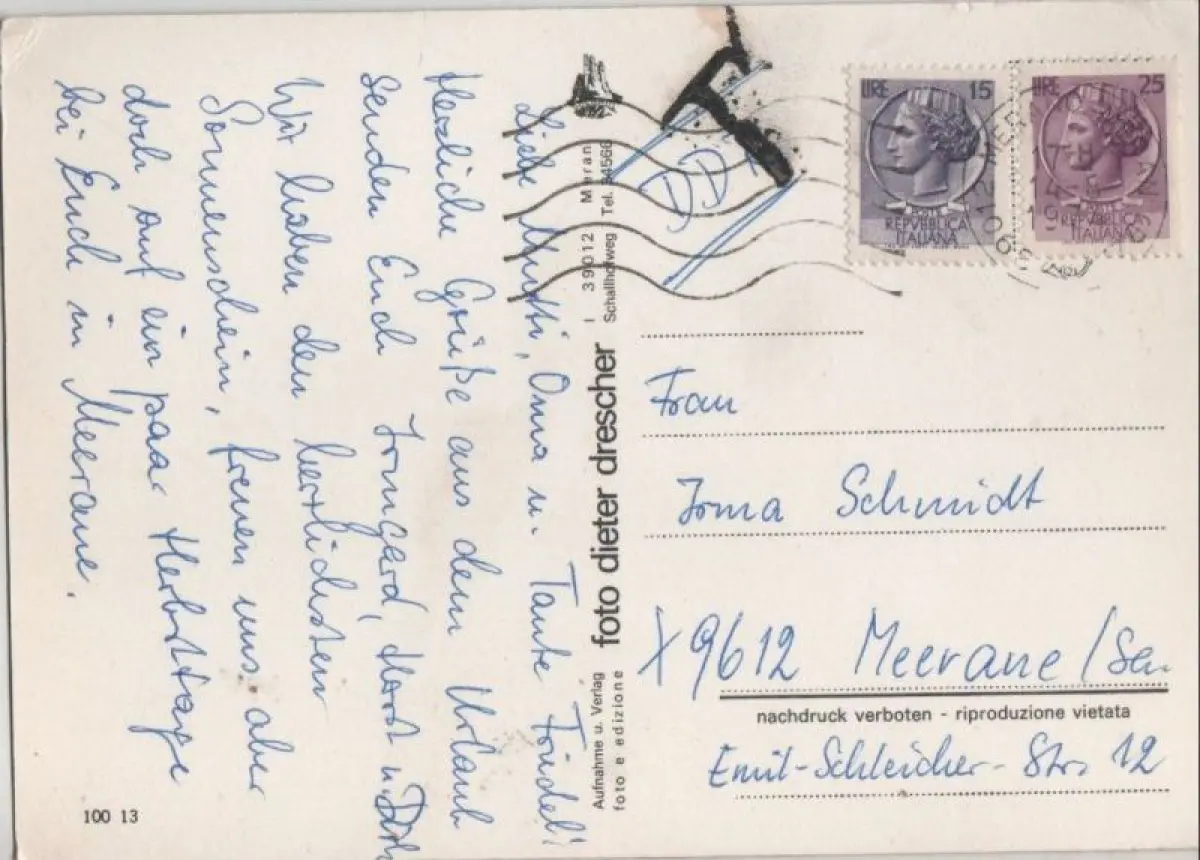 Liebe Mutti, Oma u. Tante Friedel!
Herzliche Grüße aus dem Urlaub
senden Euch Irmgard, Horst u.
Wir haben den herrlichsten
Sonnenschein, freuen uns aber
doch auf ein paar Herbsttage
bei Euch in Meerane.
100 13
Aufnahme u. Verlag
foto e edizione
foto dieter drescher
I 39012 Meran
Schallhofweg Tel.
T
DDR
LIRE 15
REPVBBLICA
ITALIANA
LIRE 25
REPVBBLICA
ITALIANA
39012 MER
Frau
Irma Schmidt
X9612 Meerane/Sa.
nachdruck verboten - riproduzione vietata
Emil-Schleicher-Str. 12